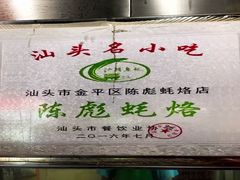 汕头名小吃
汕头市金平区陈彪蚝烙店
陈彪蚝烙
汕头市餐饮业协会
二〇一六年七月